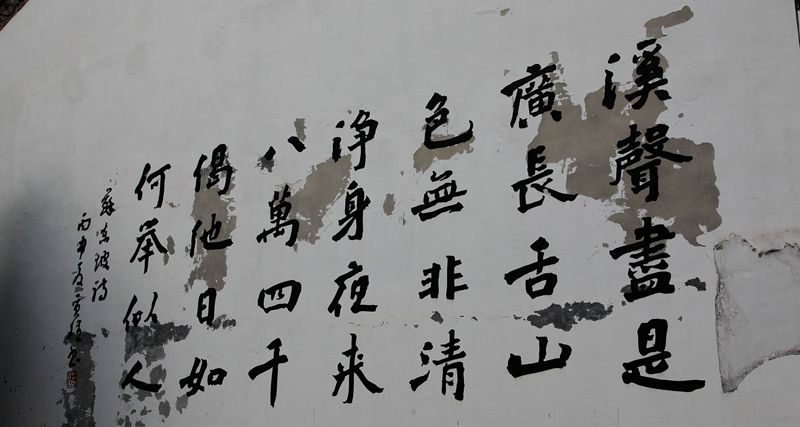 溪聲盡是
廣長舌山
色無非清
淨身夜来
八萬四千
偈他日如
何举似人
蘇東坡詩
丙申夏